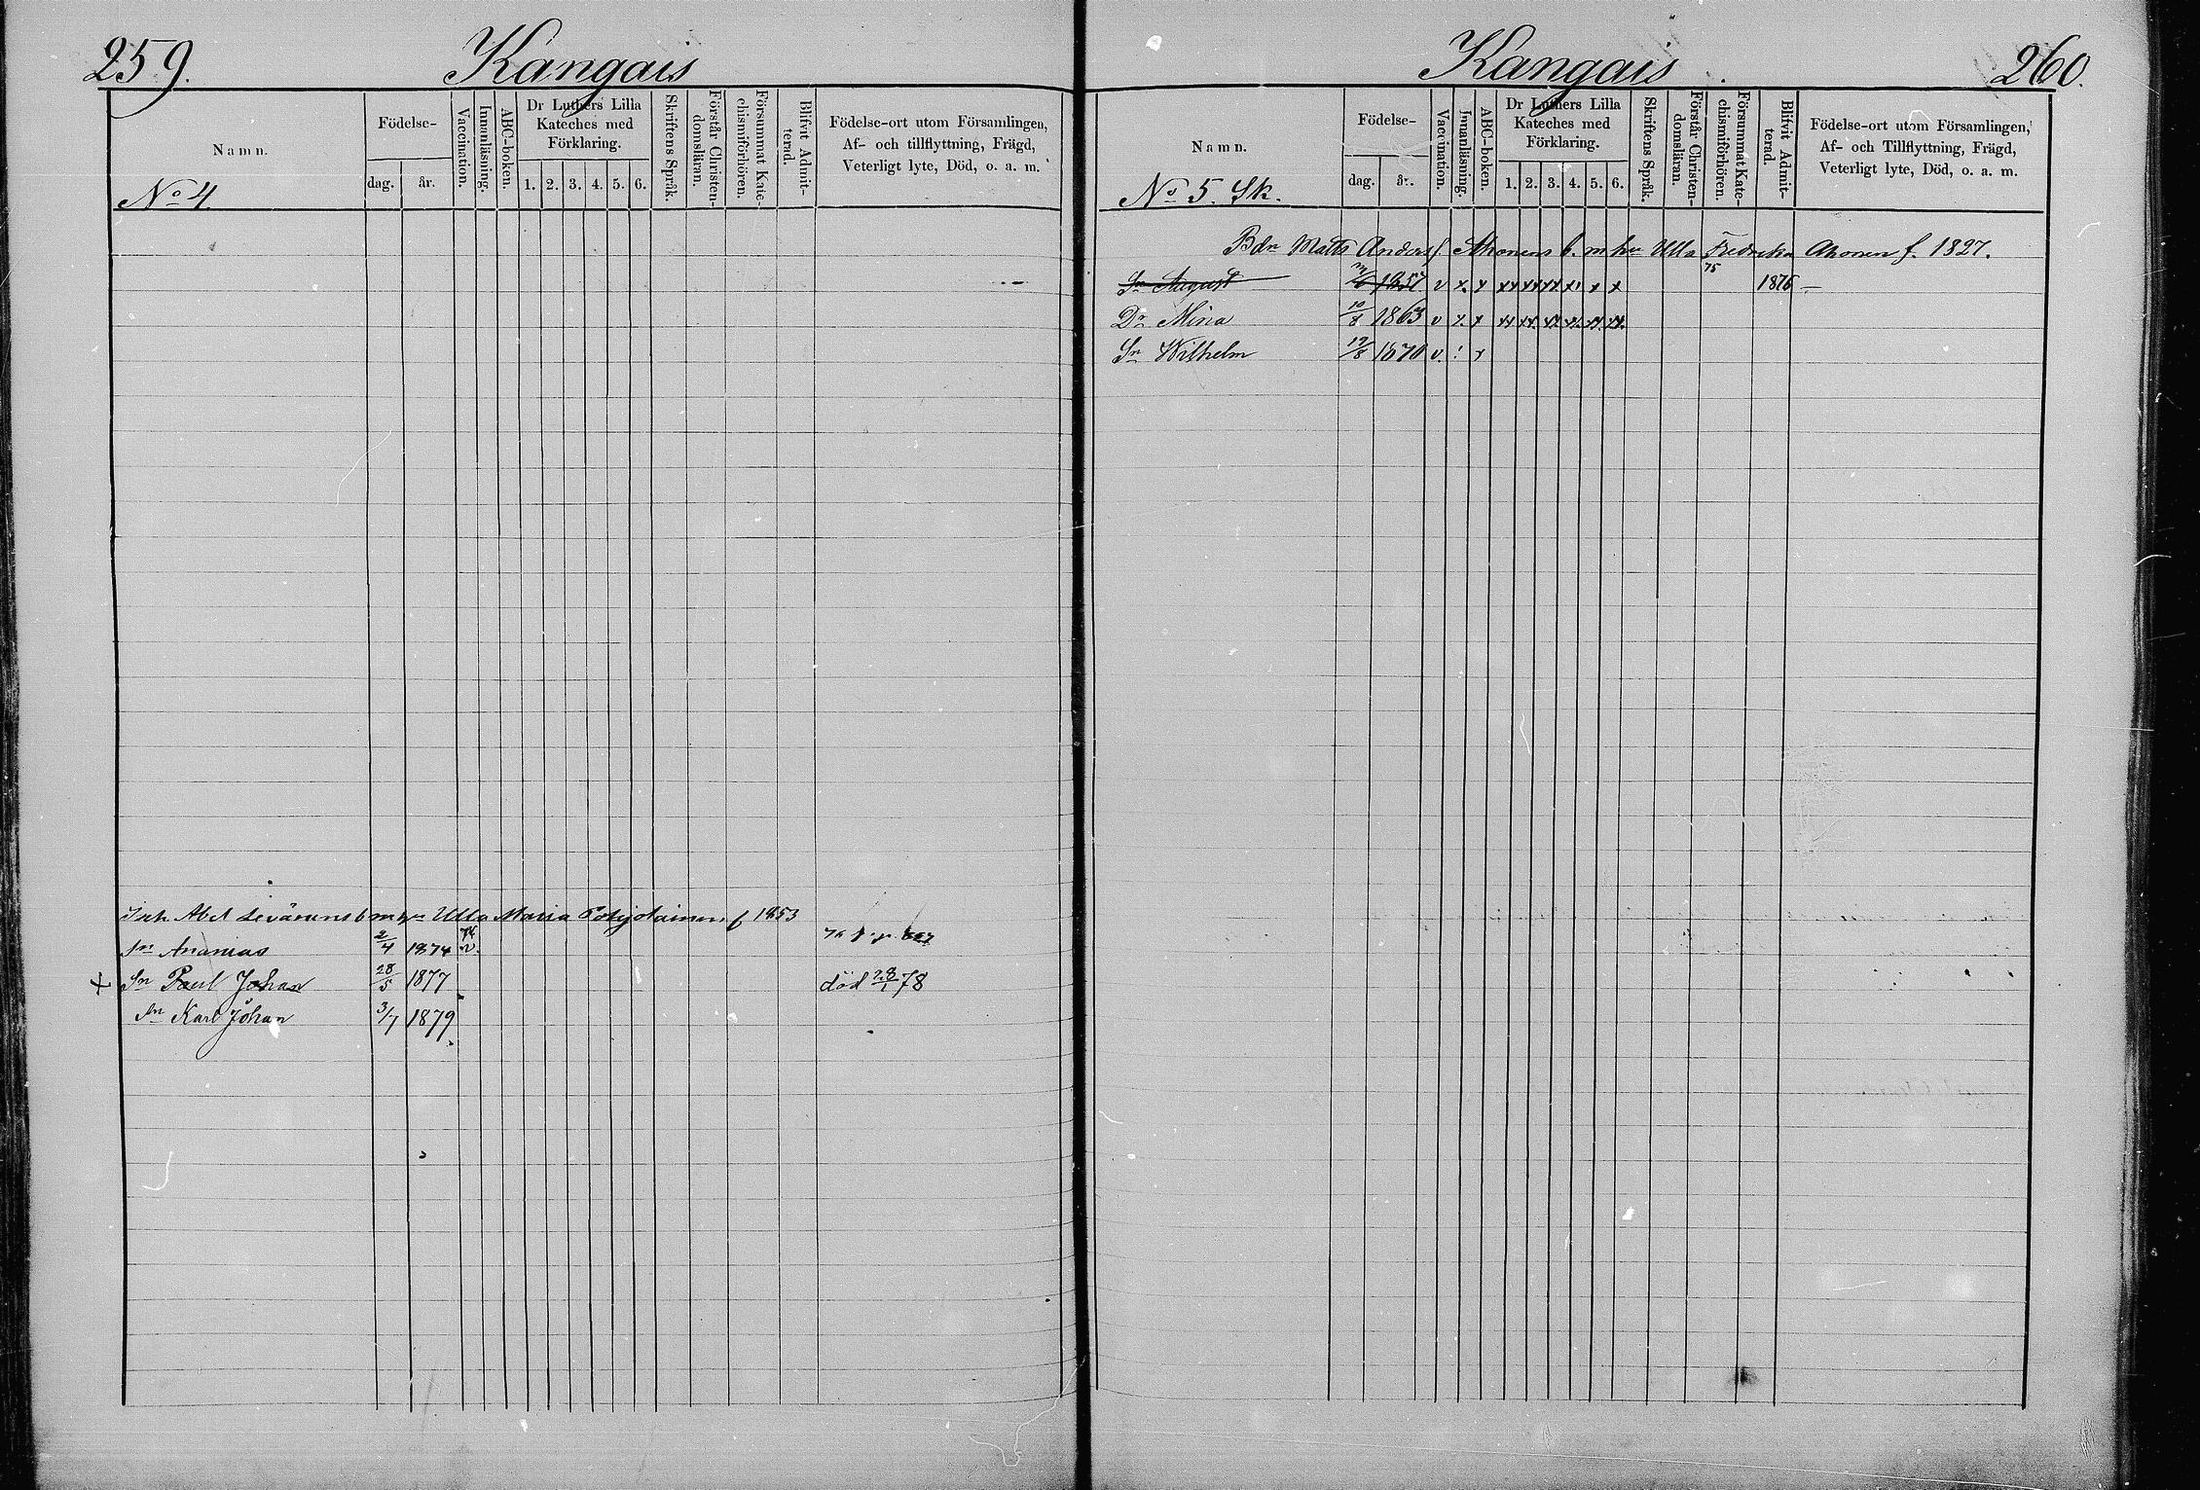 259.
Kangais
Namn.
Födelse-
dag.
år.
Vaccination.
Innanläsning.
ABC-boken.
Dr Luthers Lilla
Kateches med
Förklaring.
1. 2. 3. 4. 5. 6.
Skriftens Språk.
Förstår Christen-
domsläran.
Försummat Kate-
chismiförhören.
Blifvit Admit-
terad.
Födelse-ort utom Församlingen,
Af- och tillflyttning, Frägd,
Veterligt lyte, Död, o. a. m.
No 4
Abel b m hu Ulla Maria Pohjolainen f 1853
Sn Ananias 2/4 1874 v.
+ Sn Paul Johan 28/5 1877 död 28/1 78
Sn Karl Johan 3/7 1879
Kangais
260.
Namn.
Födelse-
dag.
år.
Vaccination.
Innanläsning.
ABC-boken.
Dr Luthers Lilla
Kateches med
Förklaring.
1. 2. 3. 4. 5. 6.
Skriftens Språk.
Förstår Christen-
domsläran.
Försummat Kate-
chismiförhören.
Blifvit Admit-
terad.
Födelse-ort utom Församlingen,
Af- och Tillflyttning, Frägd,
Veterligt lyte, Död, o. a. m.
No 5. Sk.
Bdn Matts Anders f. Ahonens b. m hu Ulla Fredrika Ahonen f. 1827.
Sn August 1857 v x x xx xx xx x x 75 1876 —
Dr Mina 10/8 1863 v x x xx xx xx xx xx xx
Sn Wilhelm 19/8 1870 v. ! x